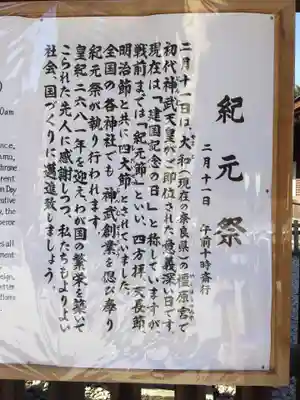 紀元祭
二月十一日 午前十時斎行
二月十一日は、大和(現在の奈良県)の橿原宮で
初代神武天皇が御即位された意義深い日です。
現在は「建国記念の日」と称していますが
戦前までは「紀元節」といい、四方拝、天長節、
明治節と共に四大節とされていました。
全国の各神社でも、神武創業を偲び奉り
紀元祭が執り行われます。
皇紀二六八一年を迎えわが国の繁栄を築いて
こられた先人に感謝しつつ、私たちもよりよい
社会、国づくりに邁進致しましょう。